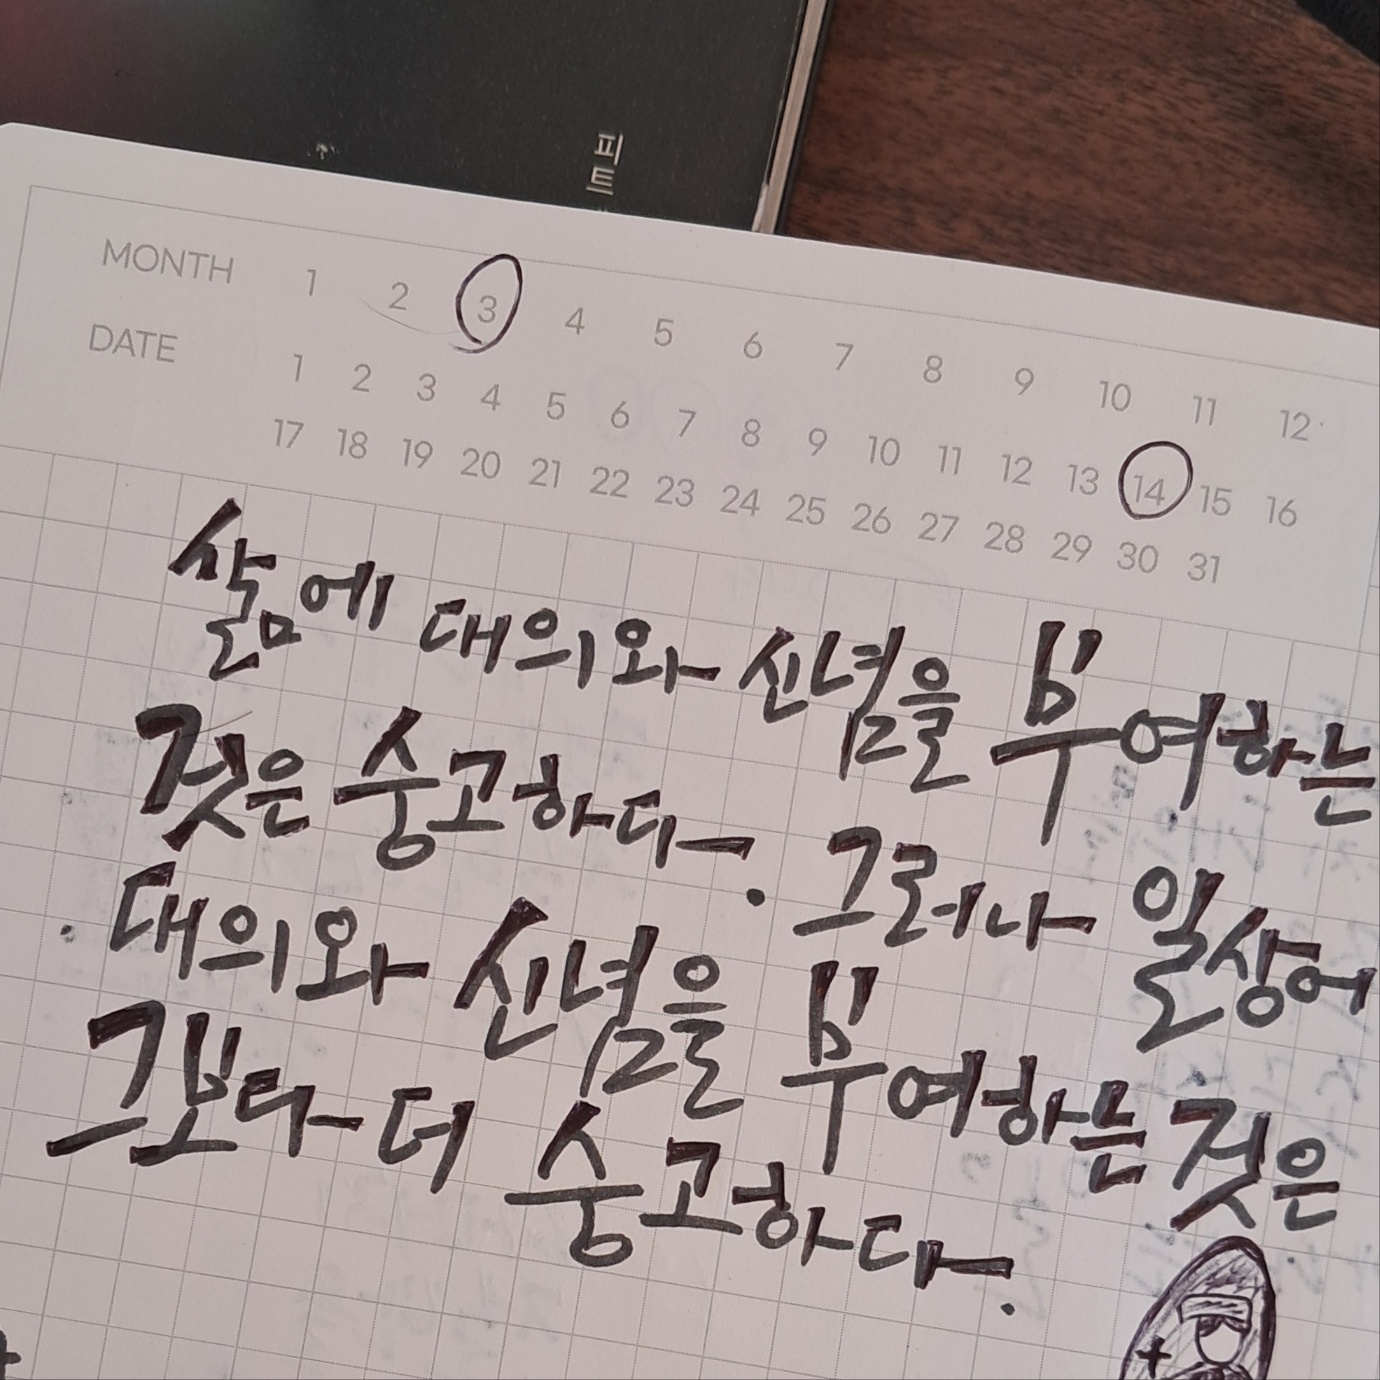 피트
MONTH 1 2 3 4 5 6 7 8 9 10 11 12
DATE 1 2 3 4 5 6 7 8 9 10 11 12 13 14 15 16
17 18 19 20 21 22 23 24 25 26 27 28 29 30 31
삶에 대의와 신념을 부여하는
것은 숭고하다. 그러나 일상에
대의와 신념을 부여하는 것은
그보다 더 숭고하다.